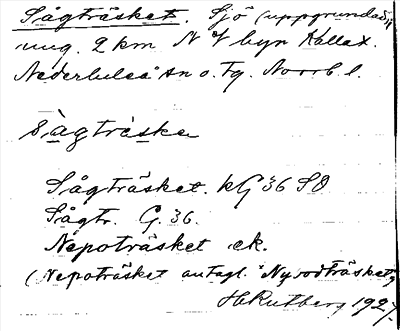 Sågträsket. Sjö (uppgrundad)
ung. 2 km N of byn Kallax.
Nederluleå sn o. tg. Norrb. l.
såg träske
Sågträsket. kG 36 SO
Sågtr. G. 36.
Nepoträsket ek.
(Nepoträsket antagl. Nyrodträsket)
H Rutberg 1927.